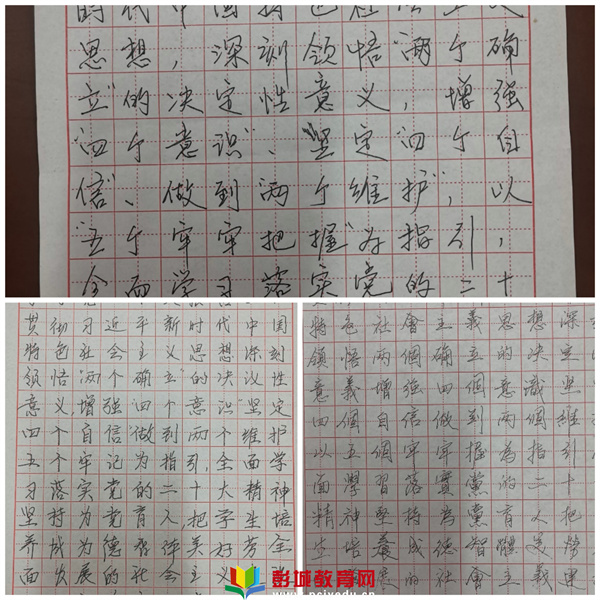 的代中国特色社会主义
思想，深刻领悟“两个确
立”的决定性意义，增强
“四个意识”、坚定“四个自
信”、做到“两个维护”，以
“五个牢牢把握”为指引，
全面学习落实党的二十
贯彻习近平新时代中国
特色社会主义思想深刻
领悟“两个确立”的决议性
意义增强“四个意识”坚定
四个自信“做到两个维护
五个牢记为指引，全面学
习落实党的二十大精神
坚持为党育人把学生培
养成为德智体美好劳全
面发展的社会主义
特色社會主義思想深
領悟兩個確立的決定
意義增強四個意識坚
四個自信做到兩個維
以五個牢牢握為指引
面學習落實黨的二十
精神堅持為黨育人把
生培養成德智體美勞
展的社會主義建
彭城教育网
www.pcjyw.com